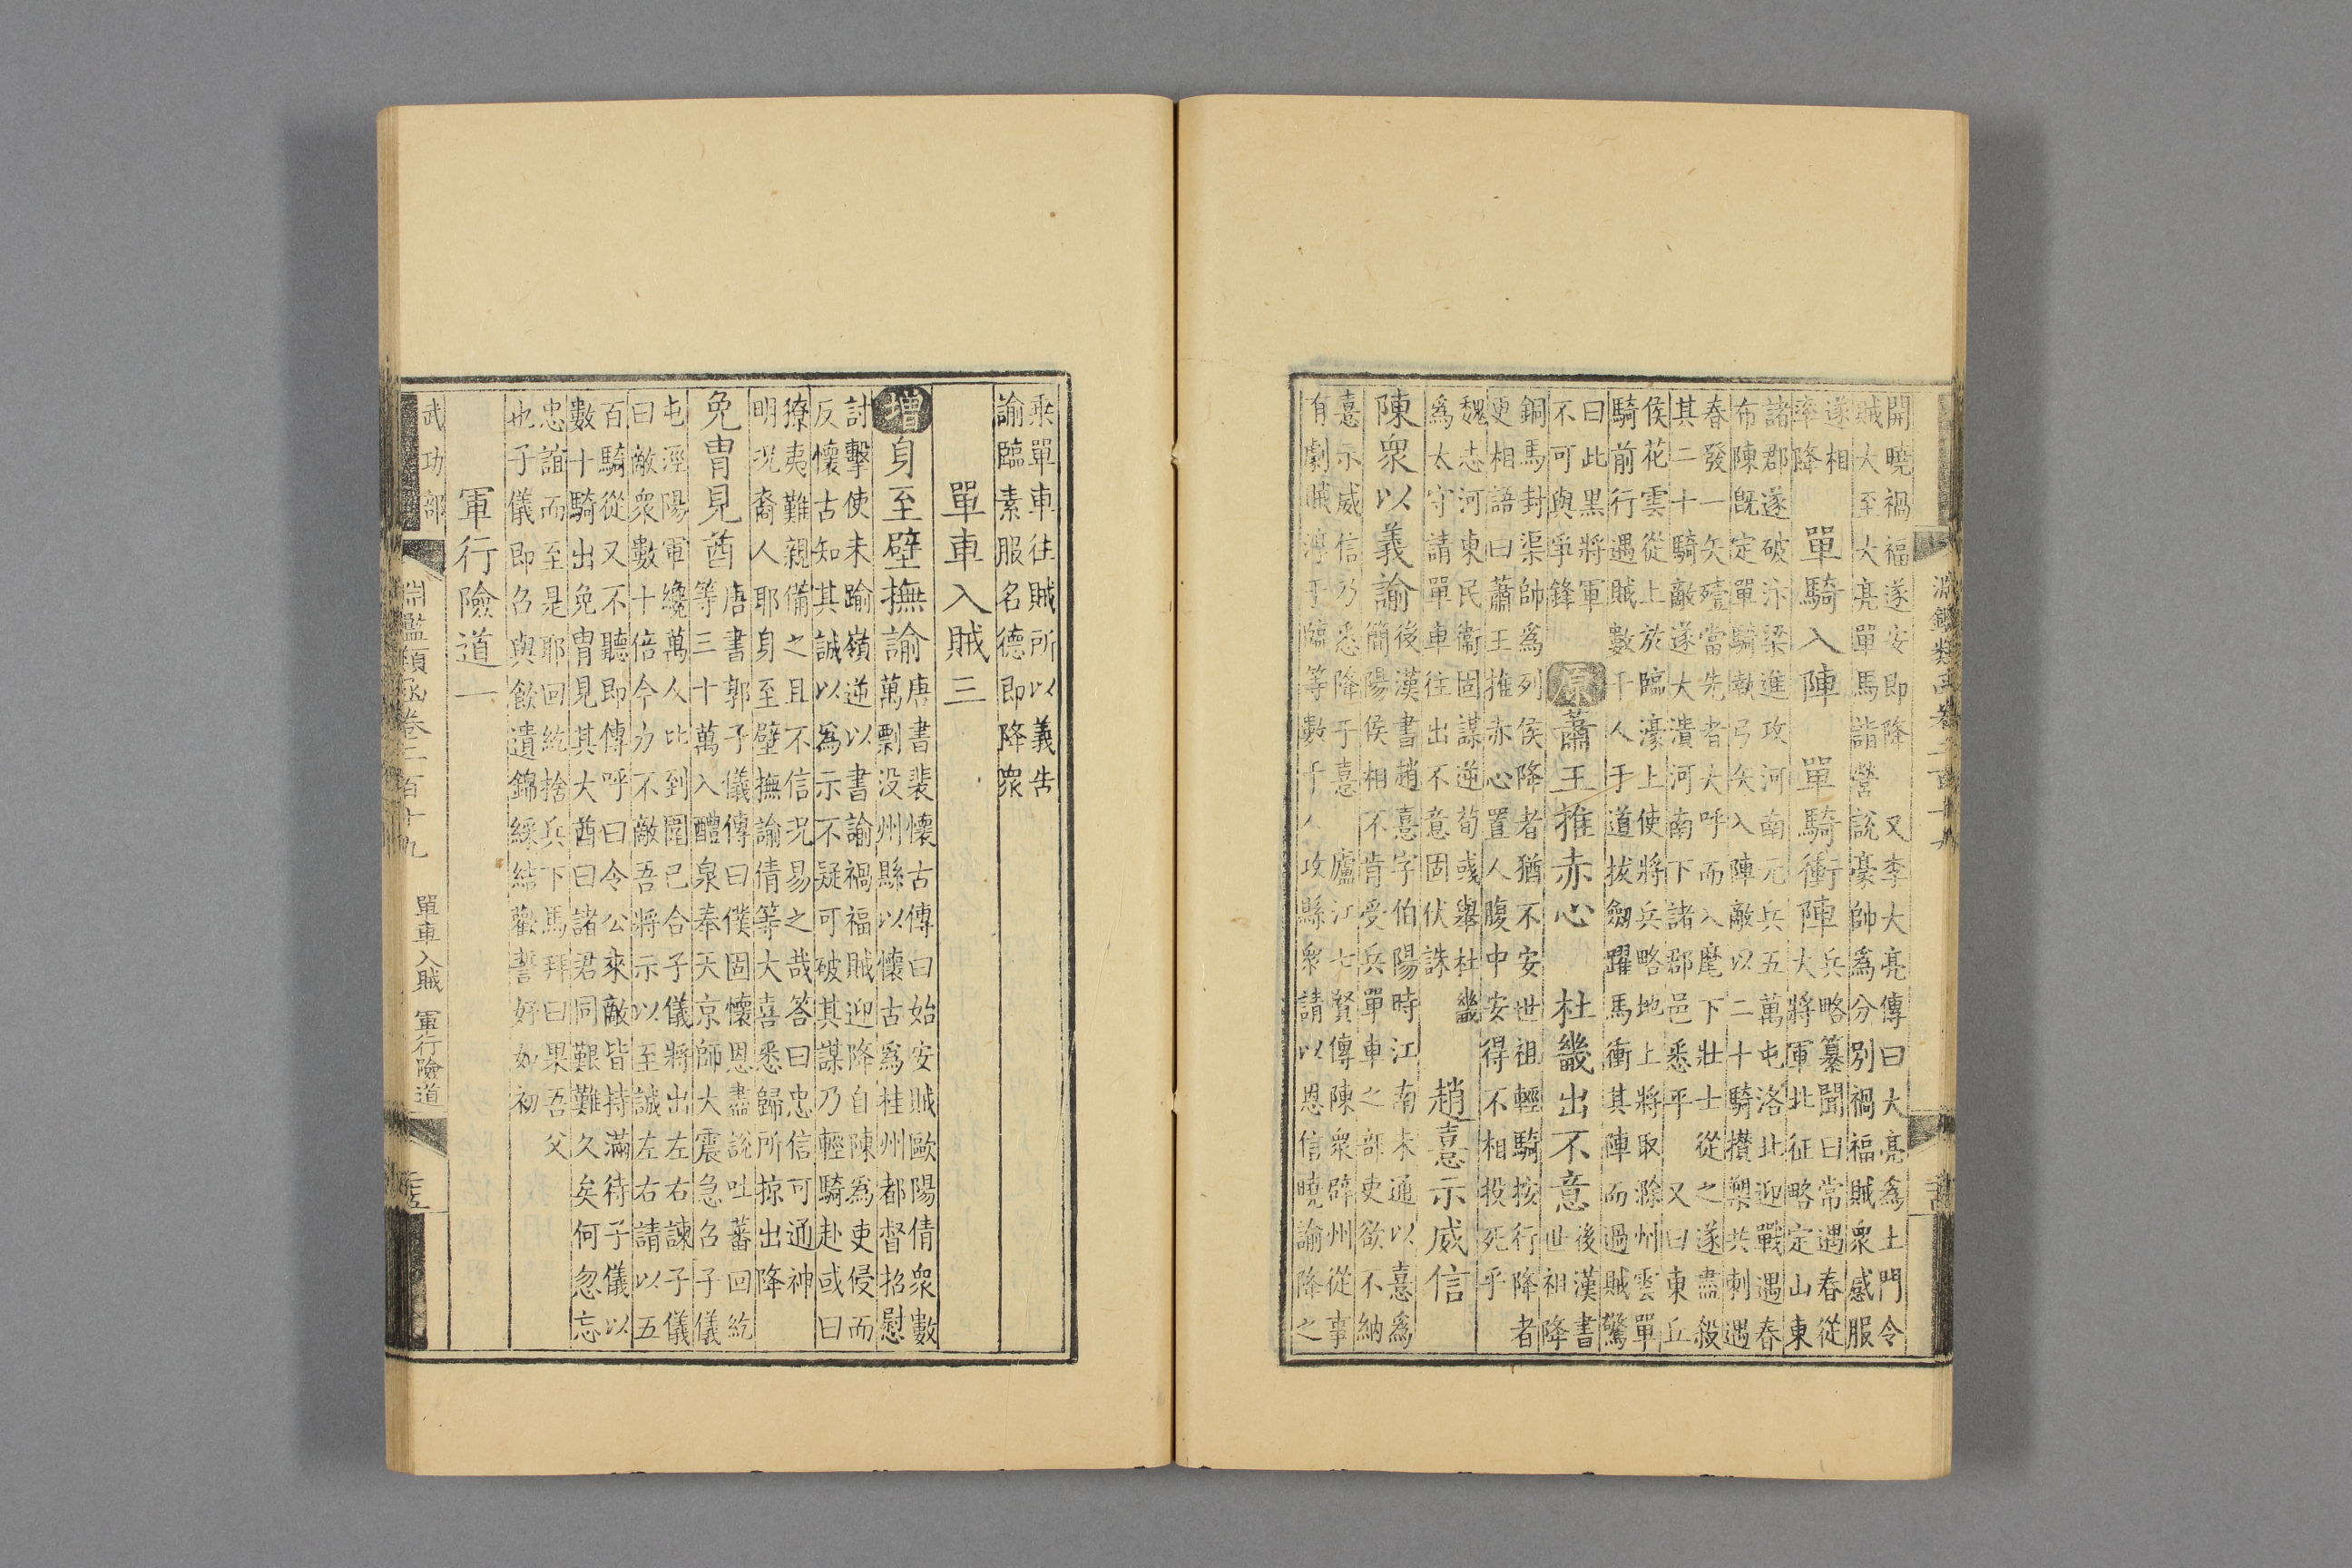 淵鑑類函卷二百十九
開曉禍福遂安即降 又李大亮傳曰大亮爲土門令
賊大至大亮單馬詣營說豪帥爲分別禍福賊衆感服
遂相
率降
單騎入陣 單騎衝陣
兵略纂聞曰常遇春從
大將軍北征略定山東
諸郡遂破汴梁進攻河南元兵五萬屯洛北迎戰遇春
布陳旣定單騎執弓矢入陣敵以二十騎攢槊共刺遇
春發一矢殪當先者大呼而入麾下壯士從之遂盡殺
其二十騎敵遂大潰河南下諸郡邑悉平 又曰東丘
侯花雲從上於臨濠上使將兵略地上將取滁州雲單
騎前行遇賊數千人于道拔劔躍馬衝其陣而過賊驚
曰此黑將軍
不可與爭鋒
原 蕭王推赤心 杜畿出不意
後漢書
世祖降
銅馬封渠帥爲列侯降者猶不安世祖輕騎按行降者
更相語曰蕭王推赤心置人腹中安得不相投死乎
魏志河東民衞固謀逆荀彧舉杜畿
爲太守請單車往出不意固伏誅
趙憙示威信
陳衆以義諭
後漢書趙憙字伯陽時江南未通以憙爲
簡陽侯相不肯受兵單車之部吏欲不納
憙示威信乃悉降于憙 廬江七賢傳陳衆辟州從事
有劇賊淳于臨等數千人攻縣衆請以恩信曉諭降之
乘單車往賊所以義告
諭臨素服名德即降衆
單車入賊三
增 身至壁撫諭
唐書裴懷古傳曰始安賊歐陽倩衆數
萬剽没州縣以懷古爲桂州都督招慰
討擊使未踰嶺逆以書諭禍福賊迎降自陳爲吏侵而
反懷古知其誠以爲示不疑可破其謀乃輕騎赴或曰
獠夷難親備之且不信况易之哉答曰忠信可通神
明况裔人耶身至壁撫諭倩等大喜悉歸所掠出降
免胄見酋
唐書郭子儀傳曰僕固懷恩盡說吐蕃回紇
等三十萬入醴泉奉天京師大震急召子儀
屯涇陽軍纔萬人比到圍已合子儀將出左右諫子儀
曰敵衆數十倍今力不敵吾將示以至誠左右請以五
百騎從又不聽即傳呼曰令公來敵皆持滿待子儀以
數十騎出免胄見其大酋曰諸君同艱難久矣何忽忘
忠誼而至是耶回紇捨兵下馬拜曰果吾父
也子儀即召與飲遺錦綵結歡誓好如初
軍行險道一
武功部 淵鑑類函卷二百十九 單車入賊 軍行險道